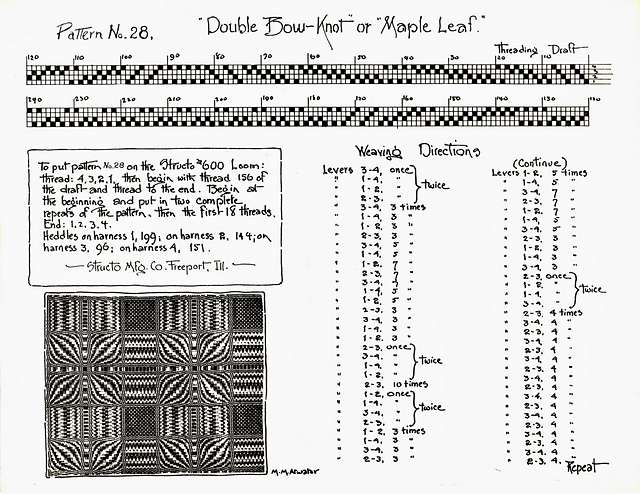 Pattern No. 28.
"Double Bow-Knot" or "Maple Leaf."
Threading Draft
120 110 100 90 80 70 60 50 40 30 20 10
240 230 220 210 200 190 180 170 160 150 140 130 120
To put pattern No. 28 on the Structo #600 Loom:
thread: 4,3,2,1, then begin with thread 156 of
the draft and thread to the end. Begin at
the beginning and put in two complete
repeats of the pattern, then the first 18 threads.
End: 1,2,3,4.
Heddles on harness 1, 199; on harness 2, 144; on
harness 3, 96; on harness 4, 151.
— Structo Mfg. Co. Freeport, Ill. —
M.M.Atwater
Weaving Directions
Levers 3-4, once
" 1-4, "
" 1-2, " twice
" 2-3, "
" 3-4, 3 times
" 1-4, 3 "
" 1-2, 3 "
" 2-3, 3 "
" 3-4, 5 "
" 1-4, 5 "
" 1-2, 7 "
" 2-3, 7 "
" 3-4, 7 "
" 1-4, 5 "
" 1-2, 5 "
" 2-3, 3 "
" 3-4, 3 "
" 1-4, 3 "
" 1-2, 3 "
" 2-3, once
" 3-4, "
" 1-4, " twice
" 1-2, "
" 2-3, 10 times
" 1-2, once
" 1-4, "
" 3-4, " twice
" 2-3, "
" 1-2, 3 times
" 1-4, 3 "
" 3-4, 3 "
" 2-3, 3 "
(Continue)
Levers 1-2, 5 times
" 1-4, 5 "
" 3-4, 7 "
" 2-3, 7 "
" 1-2, 7 "
" 1-4, 5 "
" 3-4, 5 "
" 2-3, 3 "
" 1-2, 3 "
" 1-4, 3 "
" 3-4, 3 "
" 2-3, once
" 1-2, "
" 1-4, " twice
" 3-4, "
" 2-3, 4 times
" 3-4, 4 "
" 2-3, 4 "
" 3-4, 4 "
" 2-3, 4 "
" 3-4, 4 "
" 2-3, 4 "
" 3-4, 4 "
" 2-3, 4 "
" 3-4, 4 "
" 2-3, 4 "
" 3-4, 4 "
" 2-3, 4 "
" 3-4, 4 "
" 2-3, 4 "
" 3-4, 4 "
" 2-3, 4 " Repeat